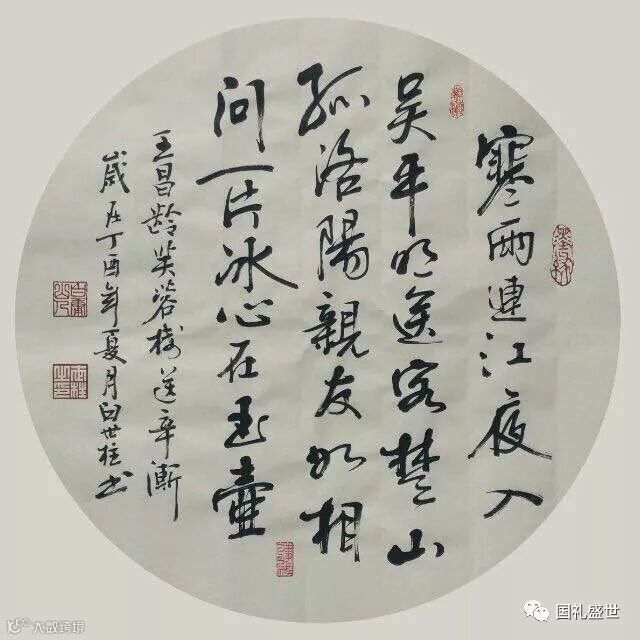 寒雨連江夜入
吴平明送客楚山
孤洛陽親友如相
问一片冰心在玉壺
王昌龄芙蓉楼送辛漸
歲在丁酉年夏月白世柱书
国礼盛世
大数跨境